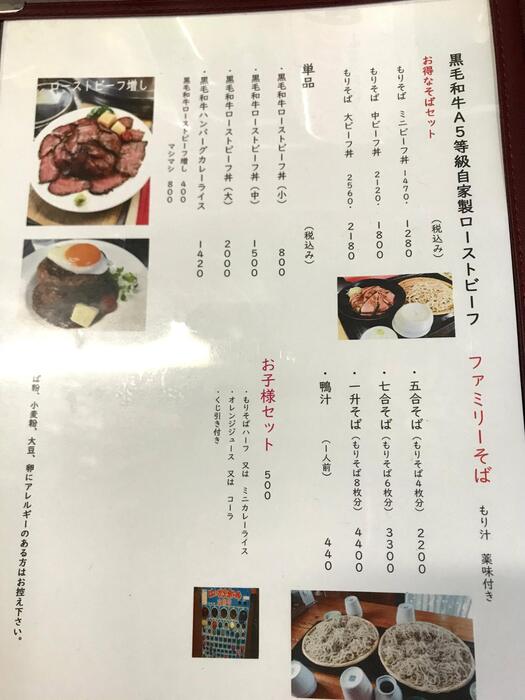 黒毛和牛A5等級自家製ローストビーフ
お得なそばセット
(税込み)
もりそば ミニビーフ丼 1470. 1280
もりそば 中ビーフ丼 2120. 1800
もりそば 大ビーフ丼 2560. 2180
単品
(税込み)
・黒毛和牛ローストビーフ丼(小) 800
・黒毛和牛ローストビーフ丼(中) 1500
・黒毛和牛ローストビーフ丼(大) 2000
・黒毛和牛ハンバーグカレーライス 1420
黒毛和牛ローストビーフ増し 400
マシマシ 800
ローストビーフ増し
ファミリーそば もり汁 薬味付き
・五合そば(もりそば4枚分) 2200
・七合そば(もりそば6枚分) 3300
・一升そば(もりそば8枚分) 4400
・鴨汁 (1人前) 440
お子様セット 500
・もりそばハーフ 又は ミニカレーライス
・オレンジジュース 又は コーラ
・くじ引き付き
ば粉、小麦粉、大豆、卵にアレルギーのある方はお控え下さい。